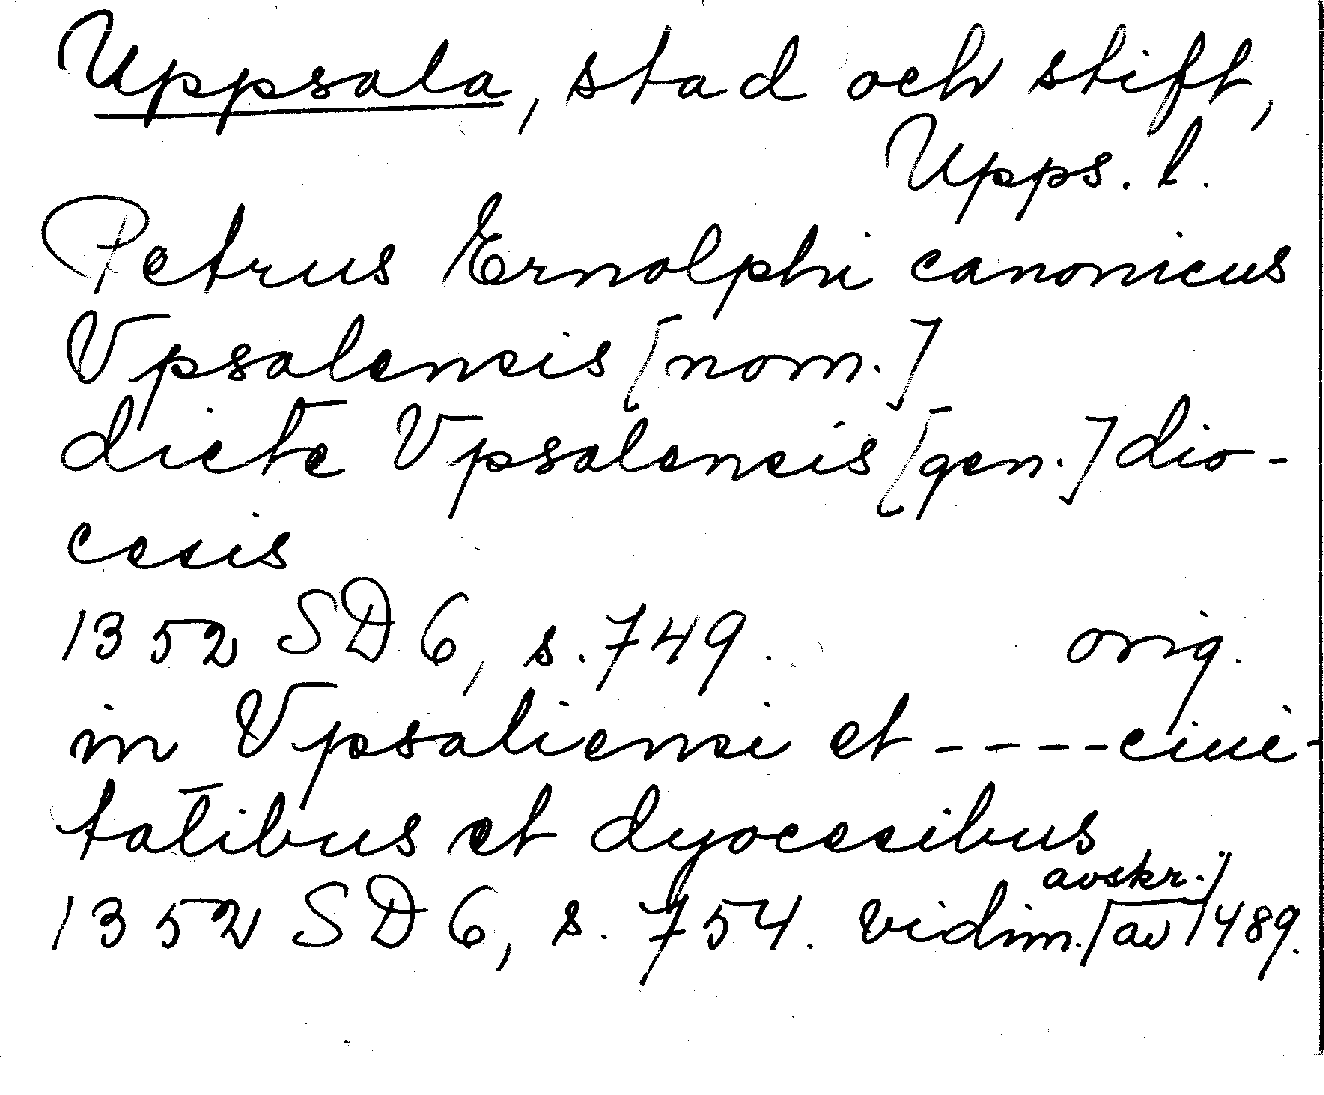 Uppsala, stad och stift,
Upps. l.
Petrus Ernolphi canonicus
Vpsalensis [nom.]
dicte Vpsalensis [gen.] dio-
cesis
1352 SD 6, s. 749. orig.
in Vpsaliensi et ---- ciui-
tatibus et dyocesibus
avskr.
1352 SD 6, s. 754. vidim. av 1489.